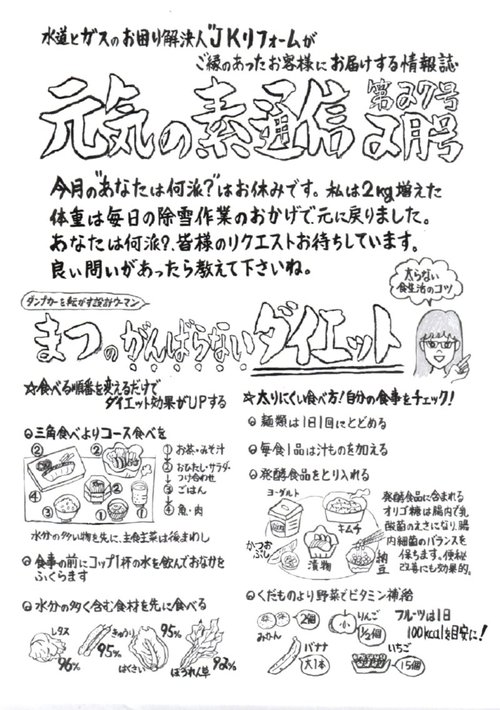 水道とガスのお困り解決人"JKリフォームが
ご縁のあったお客様にお届けする情報誌
元気の素通信
第27号
2月号
今月の"あなたは何派?"はお休みです。私は2kg増えた
体重は毎日の除雪作業のおかげで元に戻りました。
あなたは何派?、皆様のリクエストお待ちしています。
良い問いがあったら教えて下さいね。
太らない
食生活のコツ
ダンプカーを転がす設計ウーマン
まつのがんばらないダイエット
☆食べる順番を変えるだけで
ダイエット効果がUPする
三角食べよりコース食べを
② ② ④ ③ ① ①
① お茶・みそ汁
② おひたし・サラダ・
つけ合わせ
③ ごはん
④ 魚・肉
水分の多い物を先に、主食主菜は後まわし
食事の前にコップ1杯の水を飲んでおなかを
ふくらます
水分の多く含む食材を先に食べる
レタス
96%
きゅうり
95%
はくさい
95%
ほうれん草
92%
☆太りにくい食べ方!自分の食事をチェック!
麺類は1日1回にとどめる
毎食1品は汁ものを加える
発酵食品をとり入れる
ヨーグルト
キムチ
かつおぶし
漬物
納豆
発酵食品に含まれる
オリゴ糖は腸内で乳
酸菌のえさになり、腸
内細菌のバランスを
保ちます。便秘
改善にも効果的。
くだものより野菜でビタミン補給
みかん
2個
りんご
1/2個
フルーツは1日
100kcalを目安に!
バナナ
大1本
いちご
15個